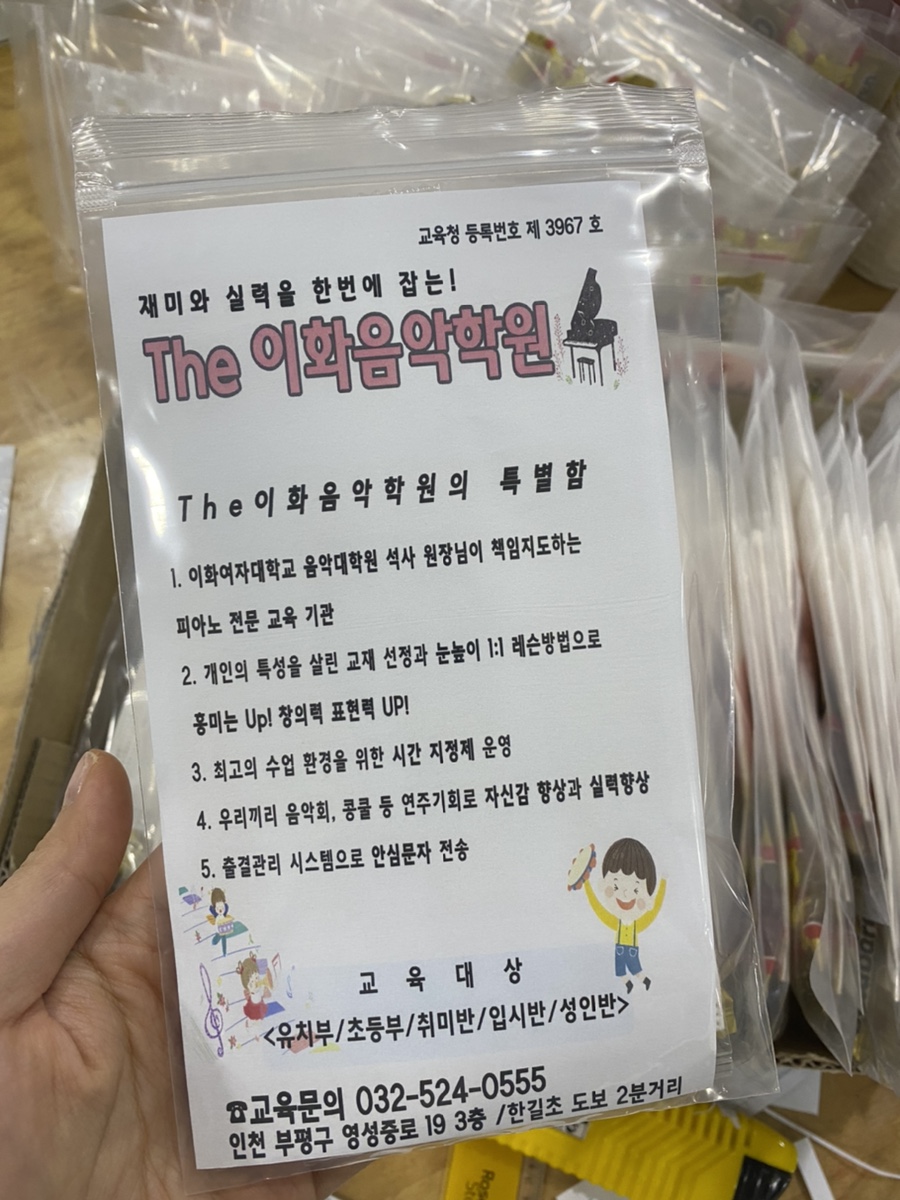 교육청 등록번호 제 3967 호
재미와 실력을 한번에 잡는!
The 이화음악학원
The이화음악학원의 특별함
1. 이화여자대학교 음악대학원 석사 원장님이 책임지도하는
피아노 전문 교육 기관
2. 개인의 특성을 살린 교재 선정과 눈높이 1:1 레슨방법으로
흥미는 Up! 창의력 표현력 UP!
3. 최고의 수업 환경을 위한 시간 지정제 운영
4. 우리끼리 음악회, 콩쿨 등 연주기회로 자신감 향상과 실력향상
5. 출결관리 시스템으로 안심문자 전송
교육대상
<유치부/초등부/취미반/입시반/성인반>
☎교육문의 032-524-0555
인천 부평구 영성중로 19 3층 /한길초 도보 2분거리